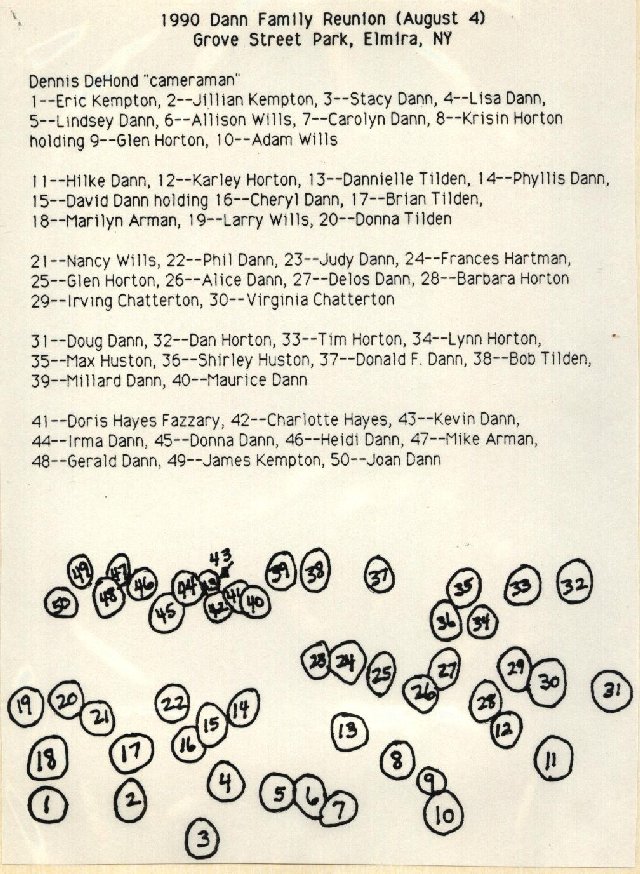 1990 Dann Family Reunion (August 4)
Grove Street Park, Elmira, NY
Dennis DeHond "cameraman"
1--Eric Kempton, 2--Jillian Kempton, 3--Stacy Dann, 4--Lisa Dann,
5--Lindsey Dann, 6--Allison Wills, 7--Carolyn Dann, 8--Krisin Horton
holding 9--Glen Horton, 10--Adam Wills
11--Hilke Dann, 12--Karley Horton, 13--Dannielle Tilden, 14--Phyllis Dann,
15--David Dann holding 16--Cheryl Dann, 17--Brian Tilden,
18--Marilyn Arman, 19--Larry Wills, 20--Donna Tilden
21--Nancy Wills, 22--Phil Dann, 23--Judy Dann, 24--Frances Hartman,
25--Glen Horton, 26--Alice Dann, 27--Delos Dann, 28--Barbara Horton
29--Irving Chatterton, 30--Virginia Chatterton
31--Doug Dann, 32--Dan Horton, 33--Tim Horton, 34--Lynn Horton,
35--Max Huston, 36--Shirley Huston, 37--Donald F. Dann, 38--Bob Tilden,
39--Millard Dann, 40--Maurice Dann
41--Doris Hayes Fazzary, 42--Charlotte Hayes, 43--Kevin Dann,
44--Irma Dann, 45--Donna Dann, 46--Heidi Dann, 47--Mike Arman,
48--Gerald Dann, 49--James Kempton, 50--Joan Dann
43
49 47 46 44 43 39 38 37 35 33 32
50 48 45 42 41 40 36 34
23 24 25 26 27 29 30 31
19 20 21 22 15 14 28 12
18 17 16 13 8 11
1 2 4 5 6 7 9 10
3